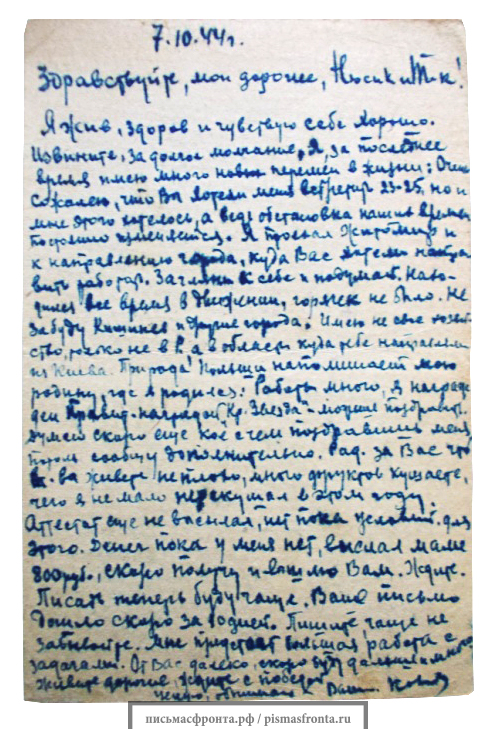 7.10.44г.
Здравствуйте, мои дорогие, Нюсик и Т-к!
Я жив, здоров и чувствую себя хорошо.
Извините, за долгое молчание. Я, за последнее
время имею много новых перемен в жизни: Очень
сожалею, что Вы хотели меня встретить 23-25, но и
мне этого хотелось, а ведь обстановка наших времен
постоянно изменяется. Я проехал Житомир и
к направлению города, куда Вас хотели напра-
вить работать. Заглянул к себе и подумал. Нахо-
дился все время в движении, горючек не было. Не
забуду Кишинев и другие города. Имею не свое хозяй-
ство, только не в Р, а в области куда тебе направляли
из Киева. Природа Польши напоминает мою
родину, где я родился. Работы много, я награж-
ден Правит. наградой "Кр. Звезда" - можете поздравить.
Думаю скоро еще кое с чем поздравишь меня,
потом сообщу дополнительно. Рад за Вас что
Вы живете неплохо, много фруктов кушаете,
чего я не мало перекушал в этом году.
Аттестат еще не выслал, нет пока условий для
этого. Денег пока у меня нет, выслал маме
800 руб., скоро получу и вышлю Вам. Ждите.
Писать теперь буду чаще. Ваше письмо
дошло скоро за 10 дней. Пишите чаще не
забывайте. Мне предстоит большая работа с
задачами. От Вас далеко, скоро буду дальше и много
живите дорогие, ждите с победой
целую, обнимаю Ваш
письмасфронта.рф / pismasfronta.ru